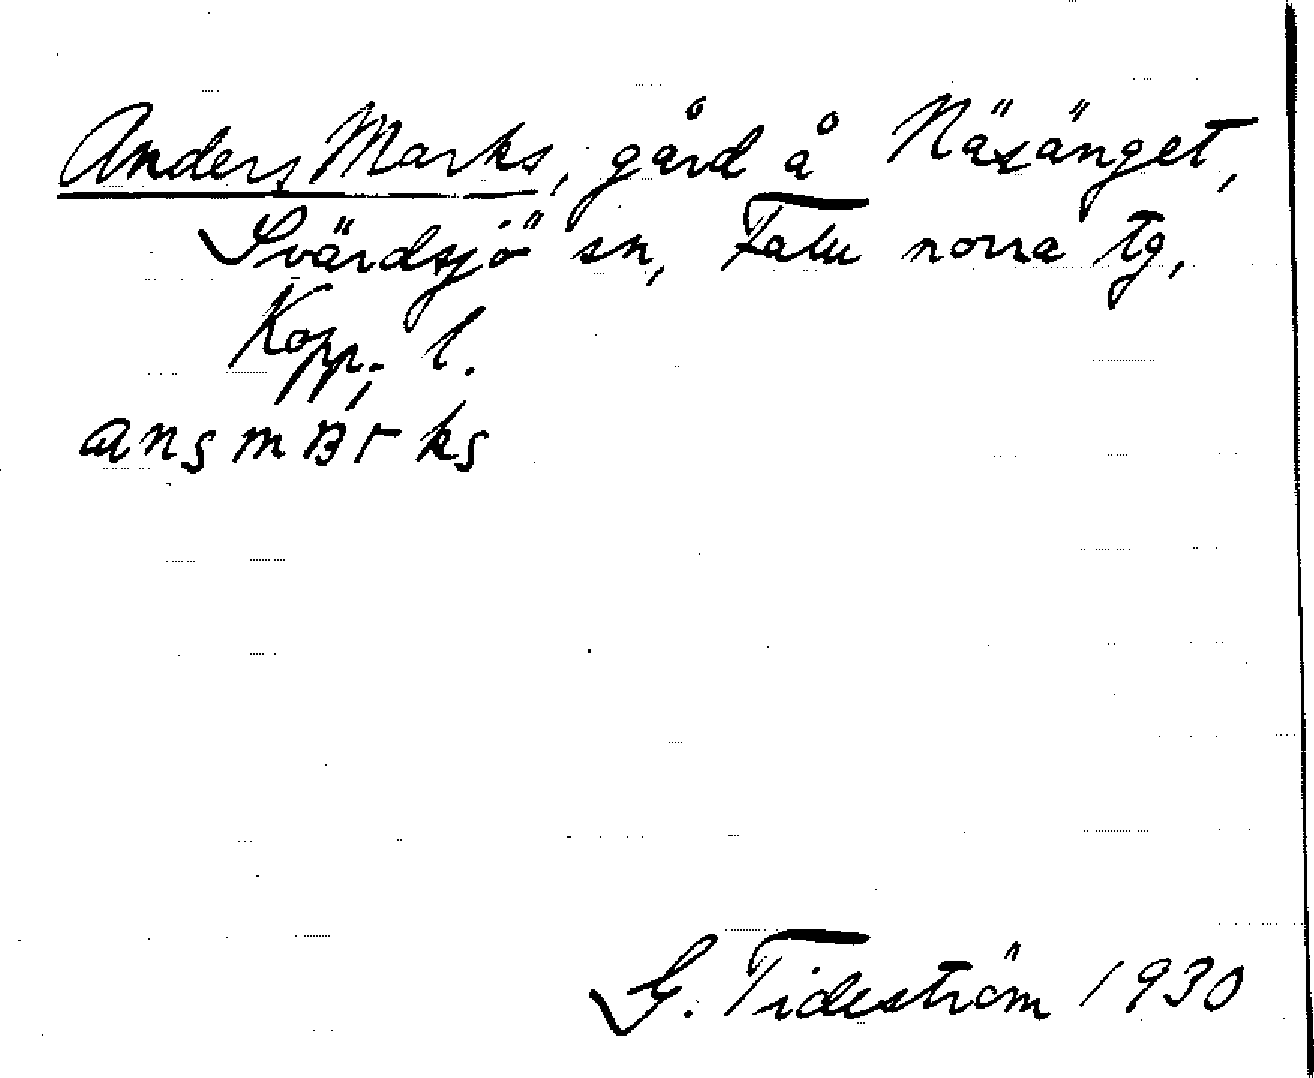 Anders Marks, gård å Näsänget,
Svärdsjö sn, Falu norra tg,
Kopp. l.
ans mar ks
G. Tideström 1930